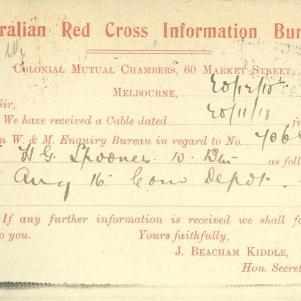 ralian Red Cross Information Bur
Colonial Mutual Chambers, 60 Market Street,
Melbourne, 20/12/18
Sir,
We have received a Cable dated 20/11/18 fr
n W. & M. Enquiry Bureau in regard to No. 706
H G Spooner 10 Bn as foll
Aug 16 Conv Depot.
If any further information is received we shall fo
to you. Yours faithfully,
J. Beacham Kiddle,
Hon. Secret